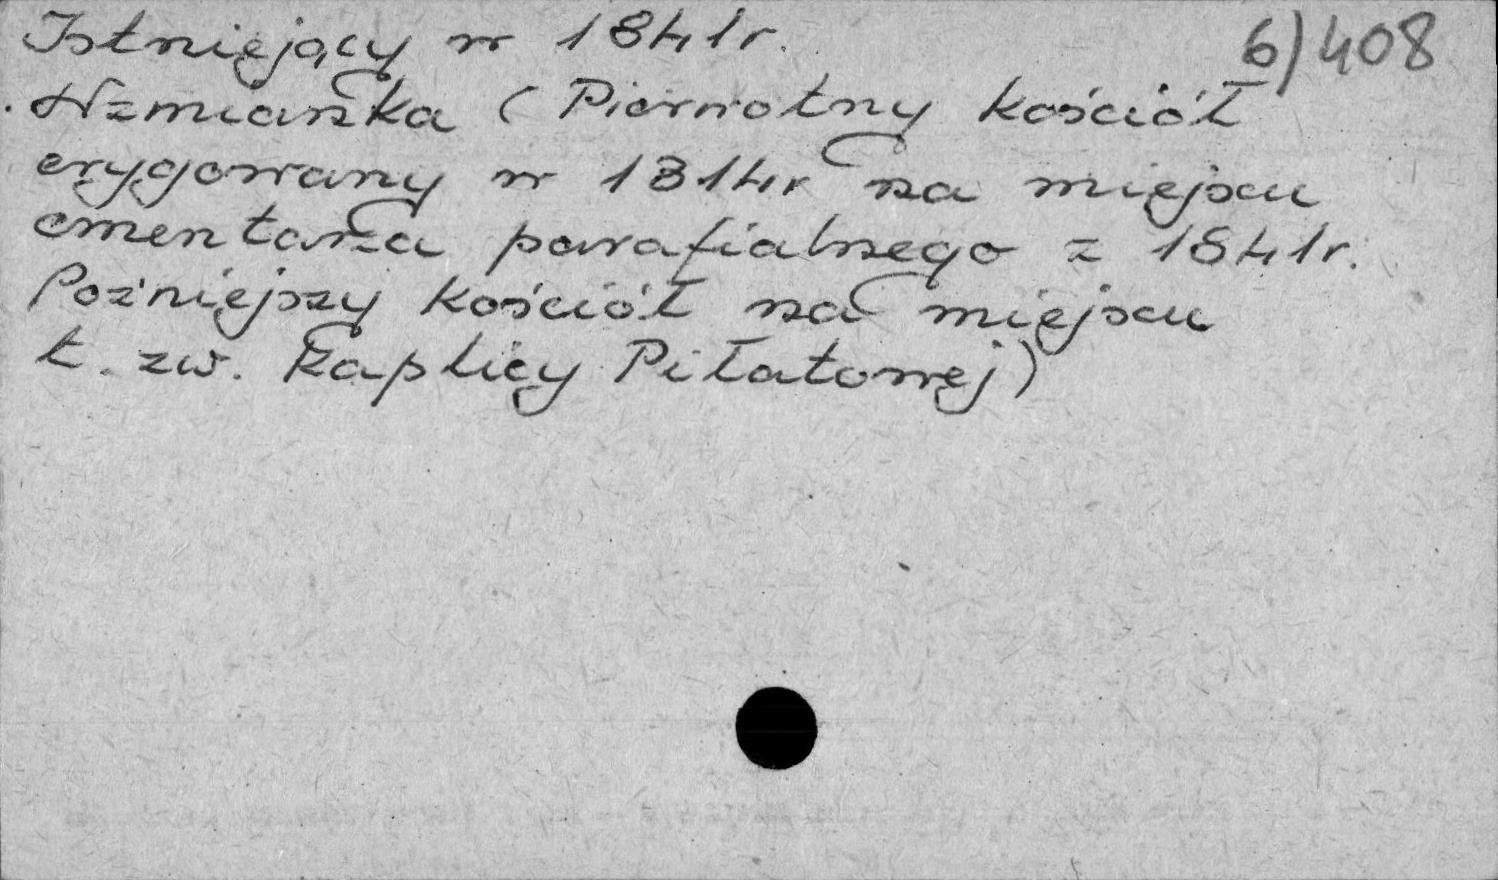 6) 408
Istniejący w 1841r.
Wzmianka (Pierwotny kościół
erygowany w 1314r na miejscu
cmentarza parafialnego z 1841r.
Późniejszy kościół na miejscu
t. zw. Kaplicy Piłatowej)